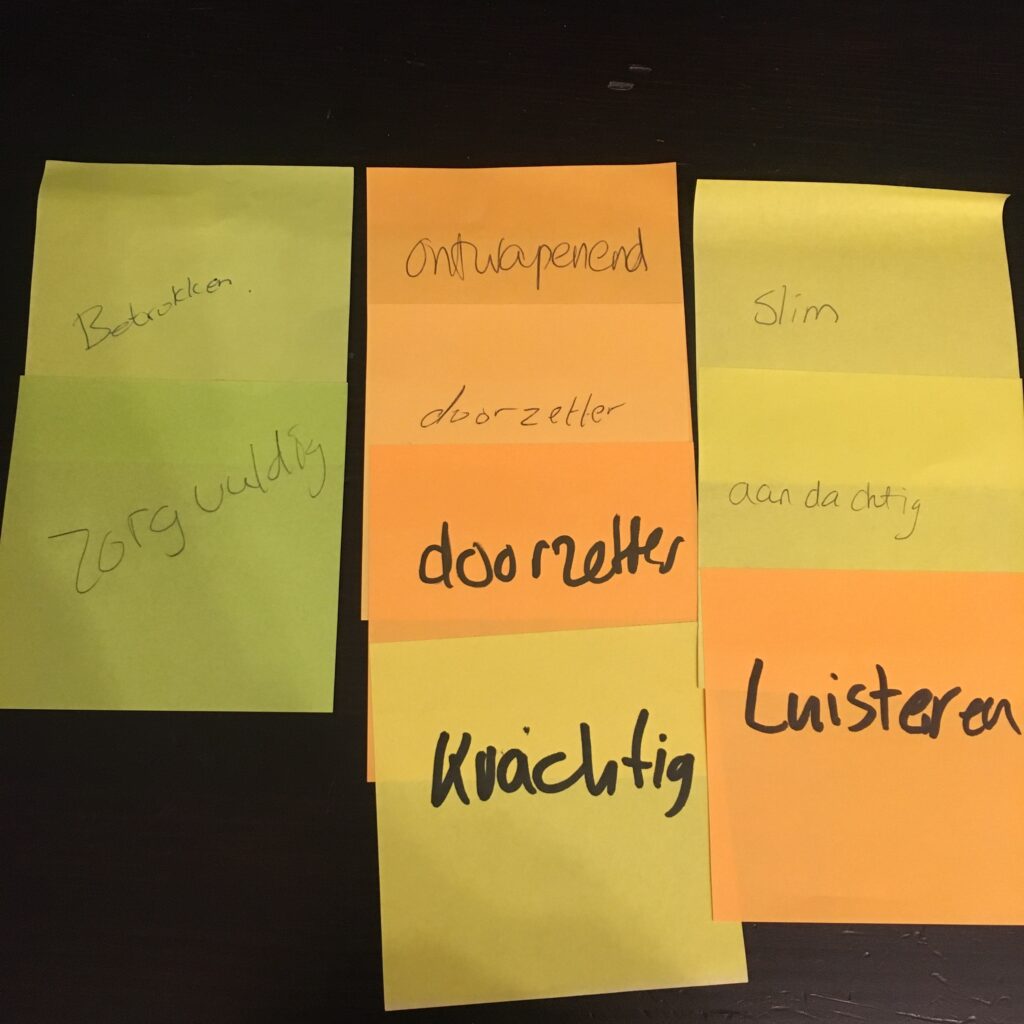 Betrokken.
Zorgvuldig
ontwapenend
doorzetter
doorzetter
krachtig
slim
aandachtig
Luisteren